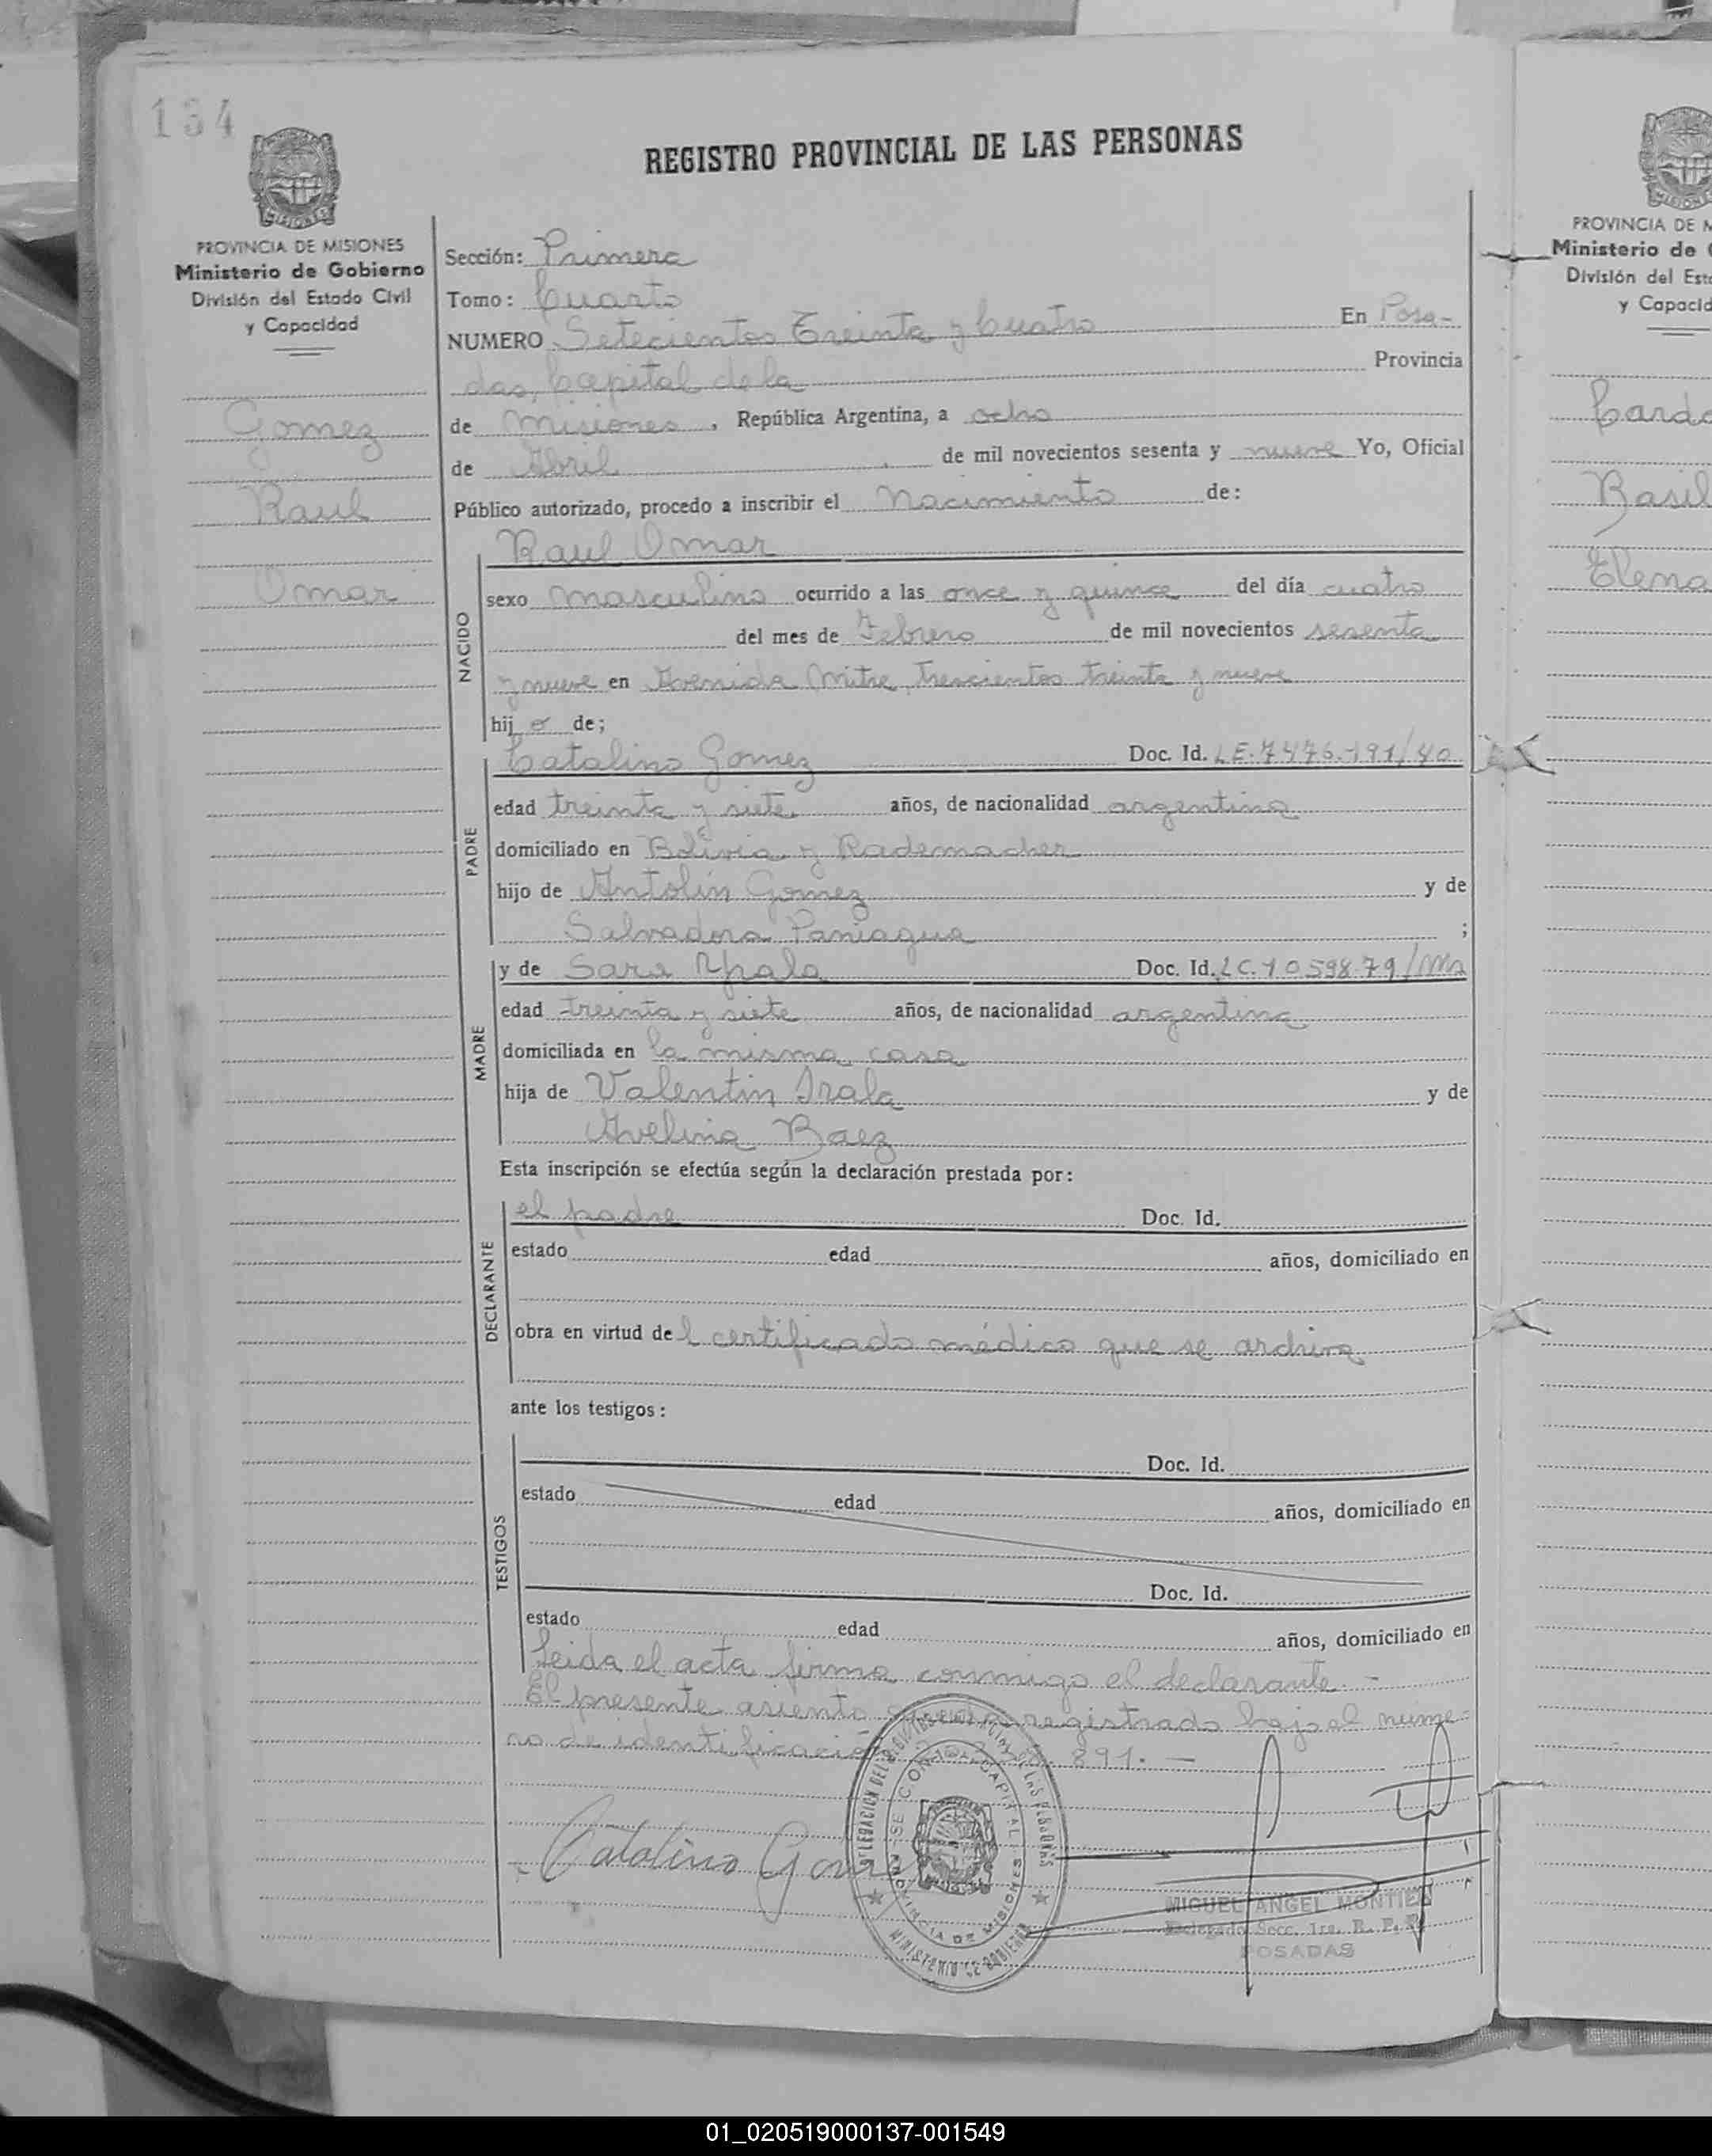 134
REGISTRO PROVINCIAL DE LAS PERSONAS
PROVINCIA DE MISIONES
Ministerio de Gobierno
División del Estado Civil
y Capacidad
Gomez
Raul
Omar
Sección: Primera
Tomo: Cuarto
NUMERO Setecientos Treinta y Cuatro En Posa-
das, Capital de la Provincia
de Misiones, República Argentina, a ocho
de Abril de mil novecientos sesenta y nueve Yo, Oficial
Público autorizado, procedo a inscribir el Nacimiento de:
Raul Omar
NACIDO
sexo masculino ocurrido a las once y quince del día cuatro
del mes de Febrero de mil novecientos sesenta
y nueve en Avenida Mitre, trescientos treinta y nueve
hijo de;
Catalino Gomez Doc. Id. L.E. 7.476.191/40
PADRE
edad treinta y siete años, de nacionalidad argentina
domiciliado en Bolivia y Rademacher
hijo de Antolín Gomez y de
Salvadora Paniagua ;
MADRE
y de Sara Yrala Doc. Id. L.C. 1059879/Ms
edad treinta y siete años, de nacionalidad argentina
domiciliada en la misma casa
hija de Valentin Irala y de
Avelina Baez
Esta inscripción se efectúa según la declaración prestada por:
DECLARANTE
el padre Doc. Id.
estado edad años, domiciliado en
obra en virtud del certificado médico que se archiva
ante los testigos:
TESTIGOS
Doc. Id.
estado edad años, domiciliado en
Doc. Id.
estado edad años, domiciliado en
Leida el acta firma conmigo el declarante. -
El presente asiento queda registrado bajo el nume-
ro de identificación 891. -
Catalino Gomez
CAPITAL
PROVINCIA DE MISIONES
MINISTERIO DE GOBIERNO
MIGUEL ANGEL MONTIEL
Delegado Secc. 1ra. R. P. P.
POSADAS
PROVINCIA DE M
Ministerio de G
División del Est
y Capacid
Cardo
Basil
Elena
01_020519000137-001549